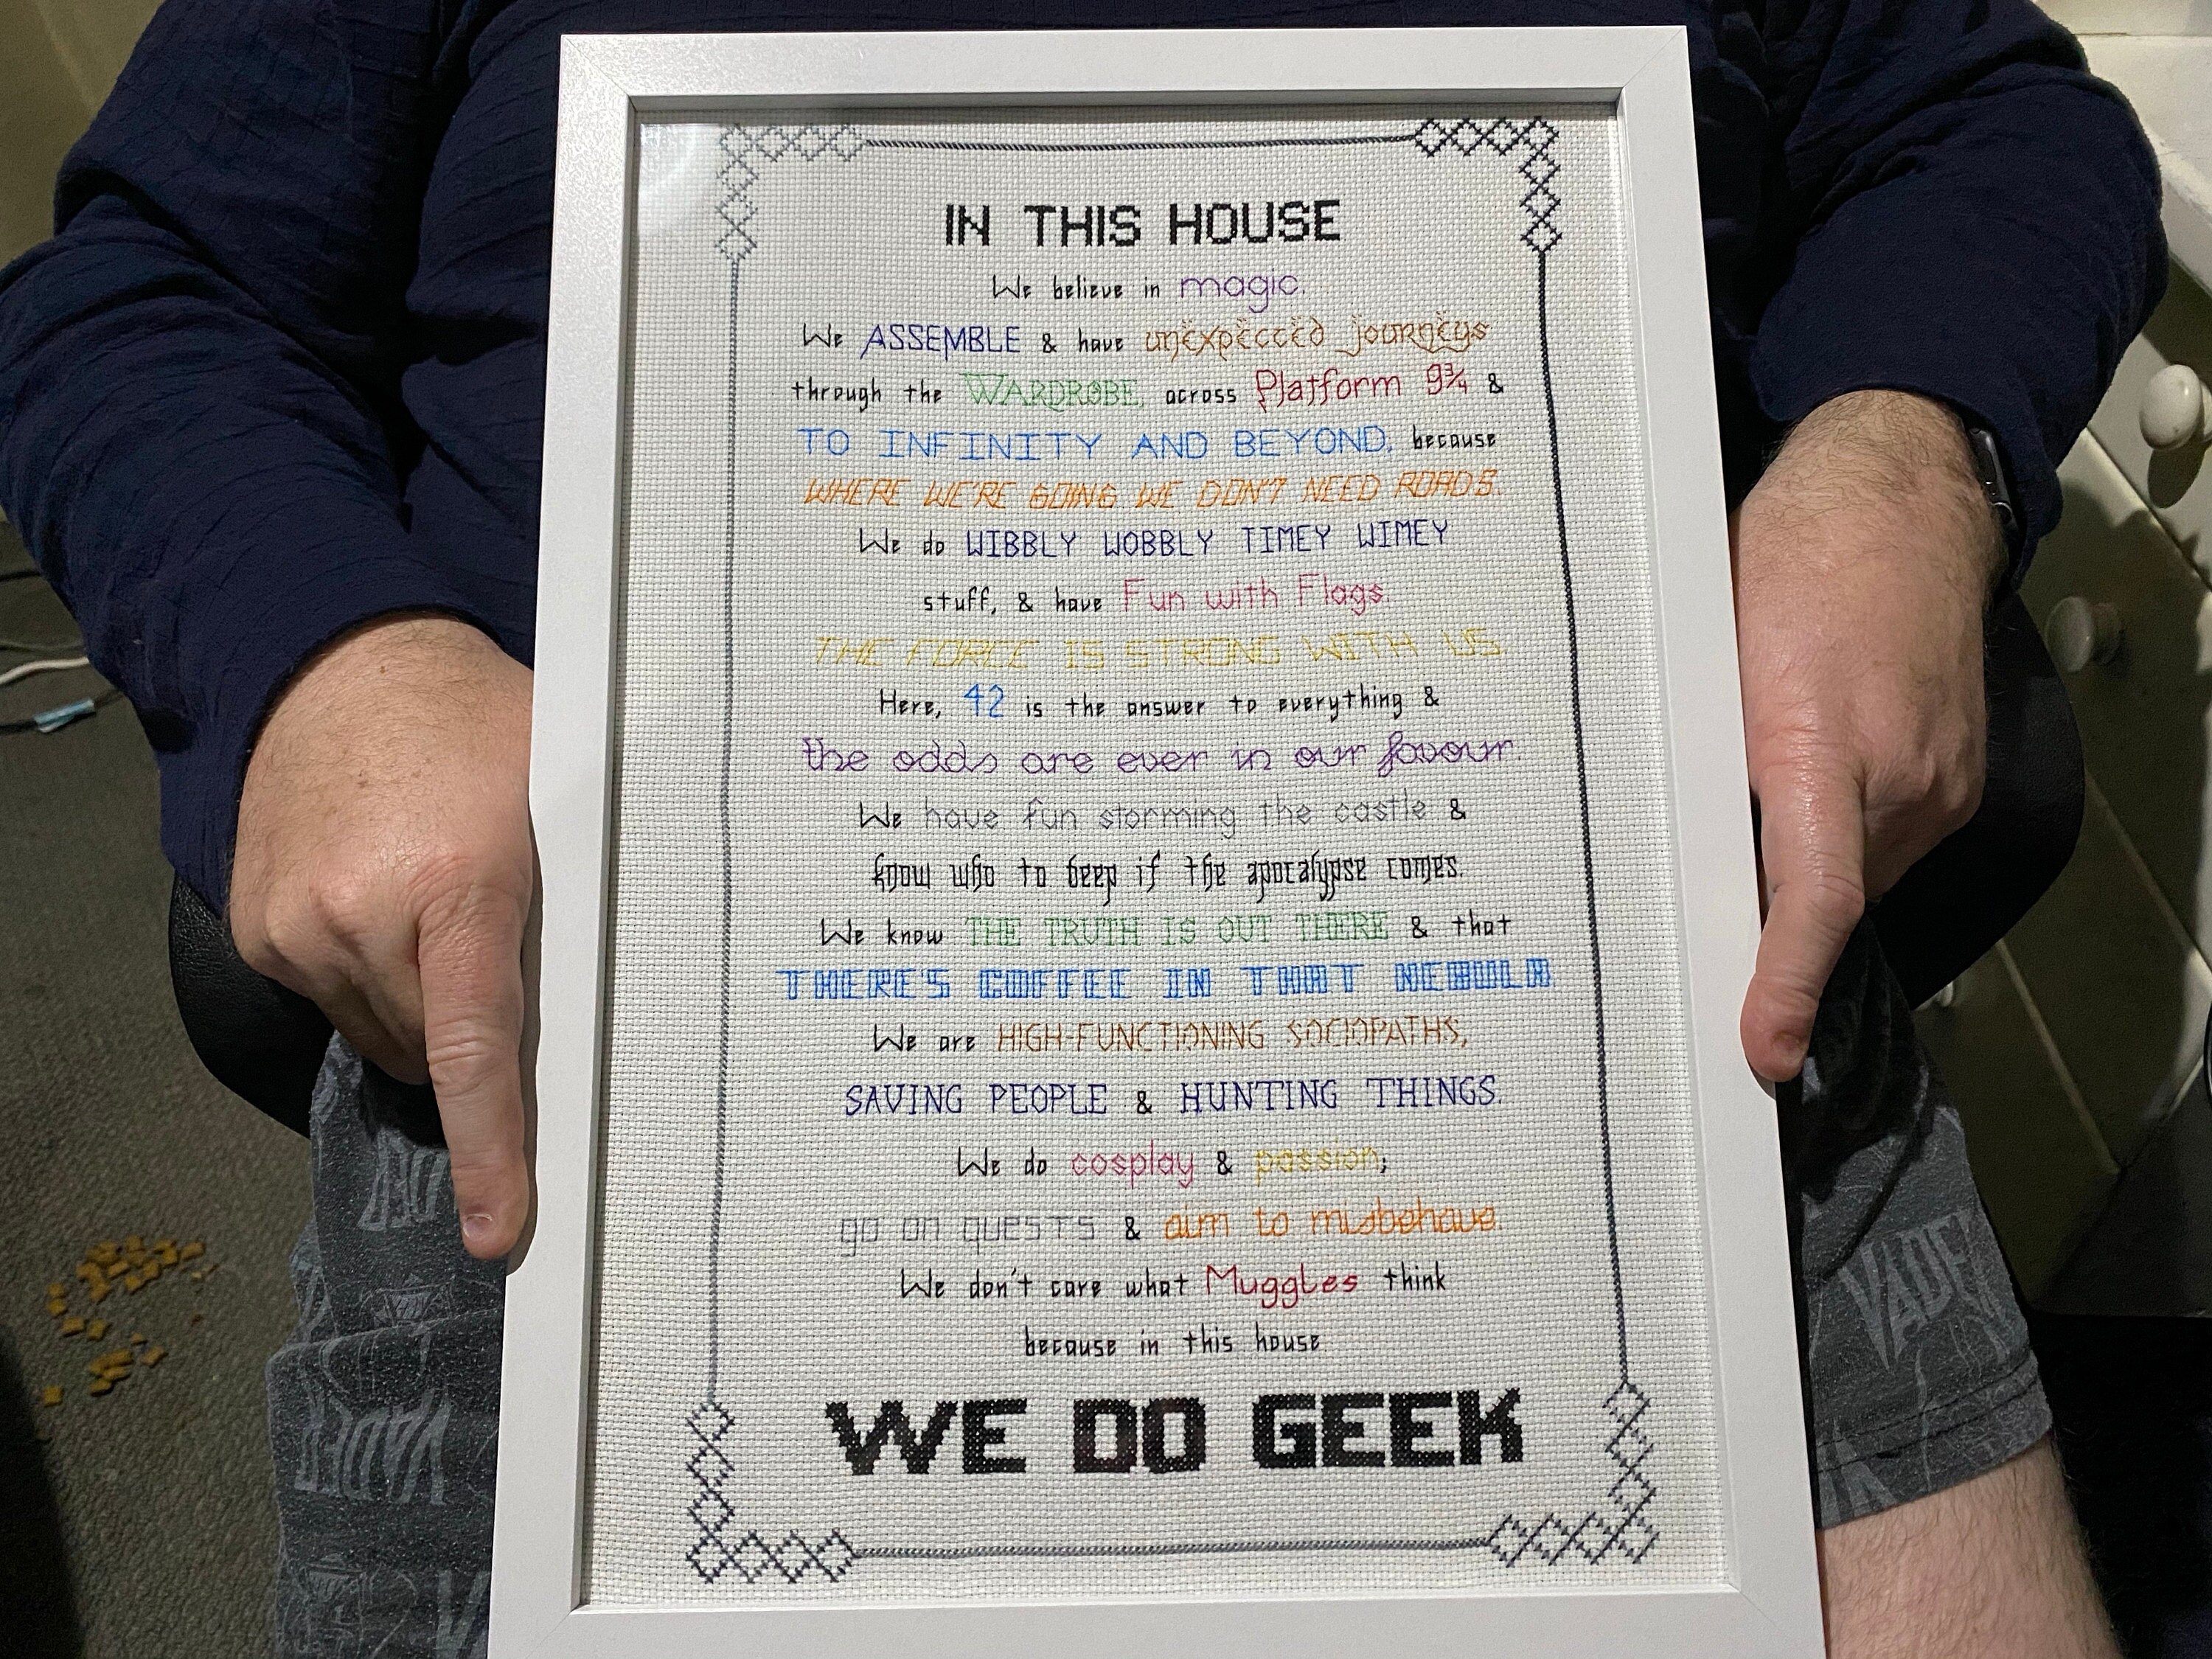 IN THIS HOUSE
We believe in magic.
We ASSEMBLE & have unexpected journeys
through the WARDROBE, across Platform 9¾ &
TO INFINITY AND BEYOND, because
WHERE WE'RE GOING WE DON'T NEED ROADS.
We do WIBBLY WOBBLY TIMEY WIMEY
stuff, & have Fun with Flags.
THE FORCE IS STRONG WITH US
Here, 42 is the answer to everything &
the odds are ever in our favour.
We have fun storming the castle &
know who to beep if the apocalypse comes.
We know THE TRUTH IS OUT THERE & that
THERE'S COFFEE IN THAT NEBULA.
We are HIGH-FUNCTIONING SOCIOPATHS,
SAVING PEOPLE & HUNTING THINGS.
We do cosplay & passion;
go on quests & aim to misbehave.
We don't care what Muggles think
because in this house
WE DO GEEK
VADER
VADER
VADER